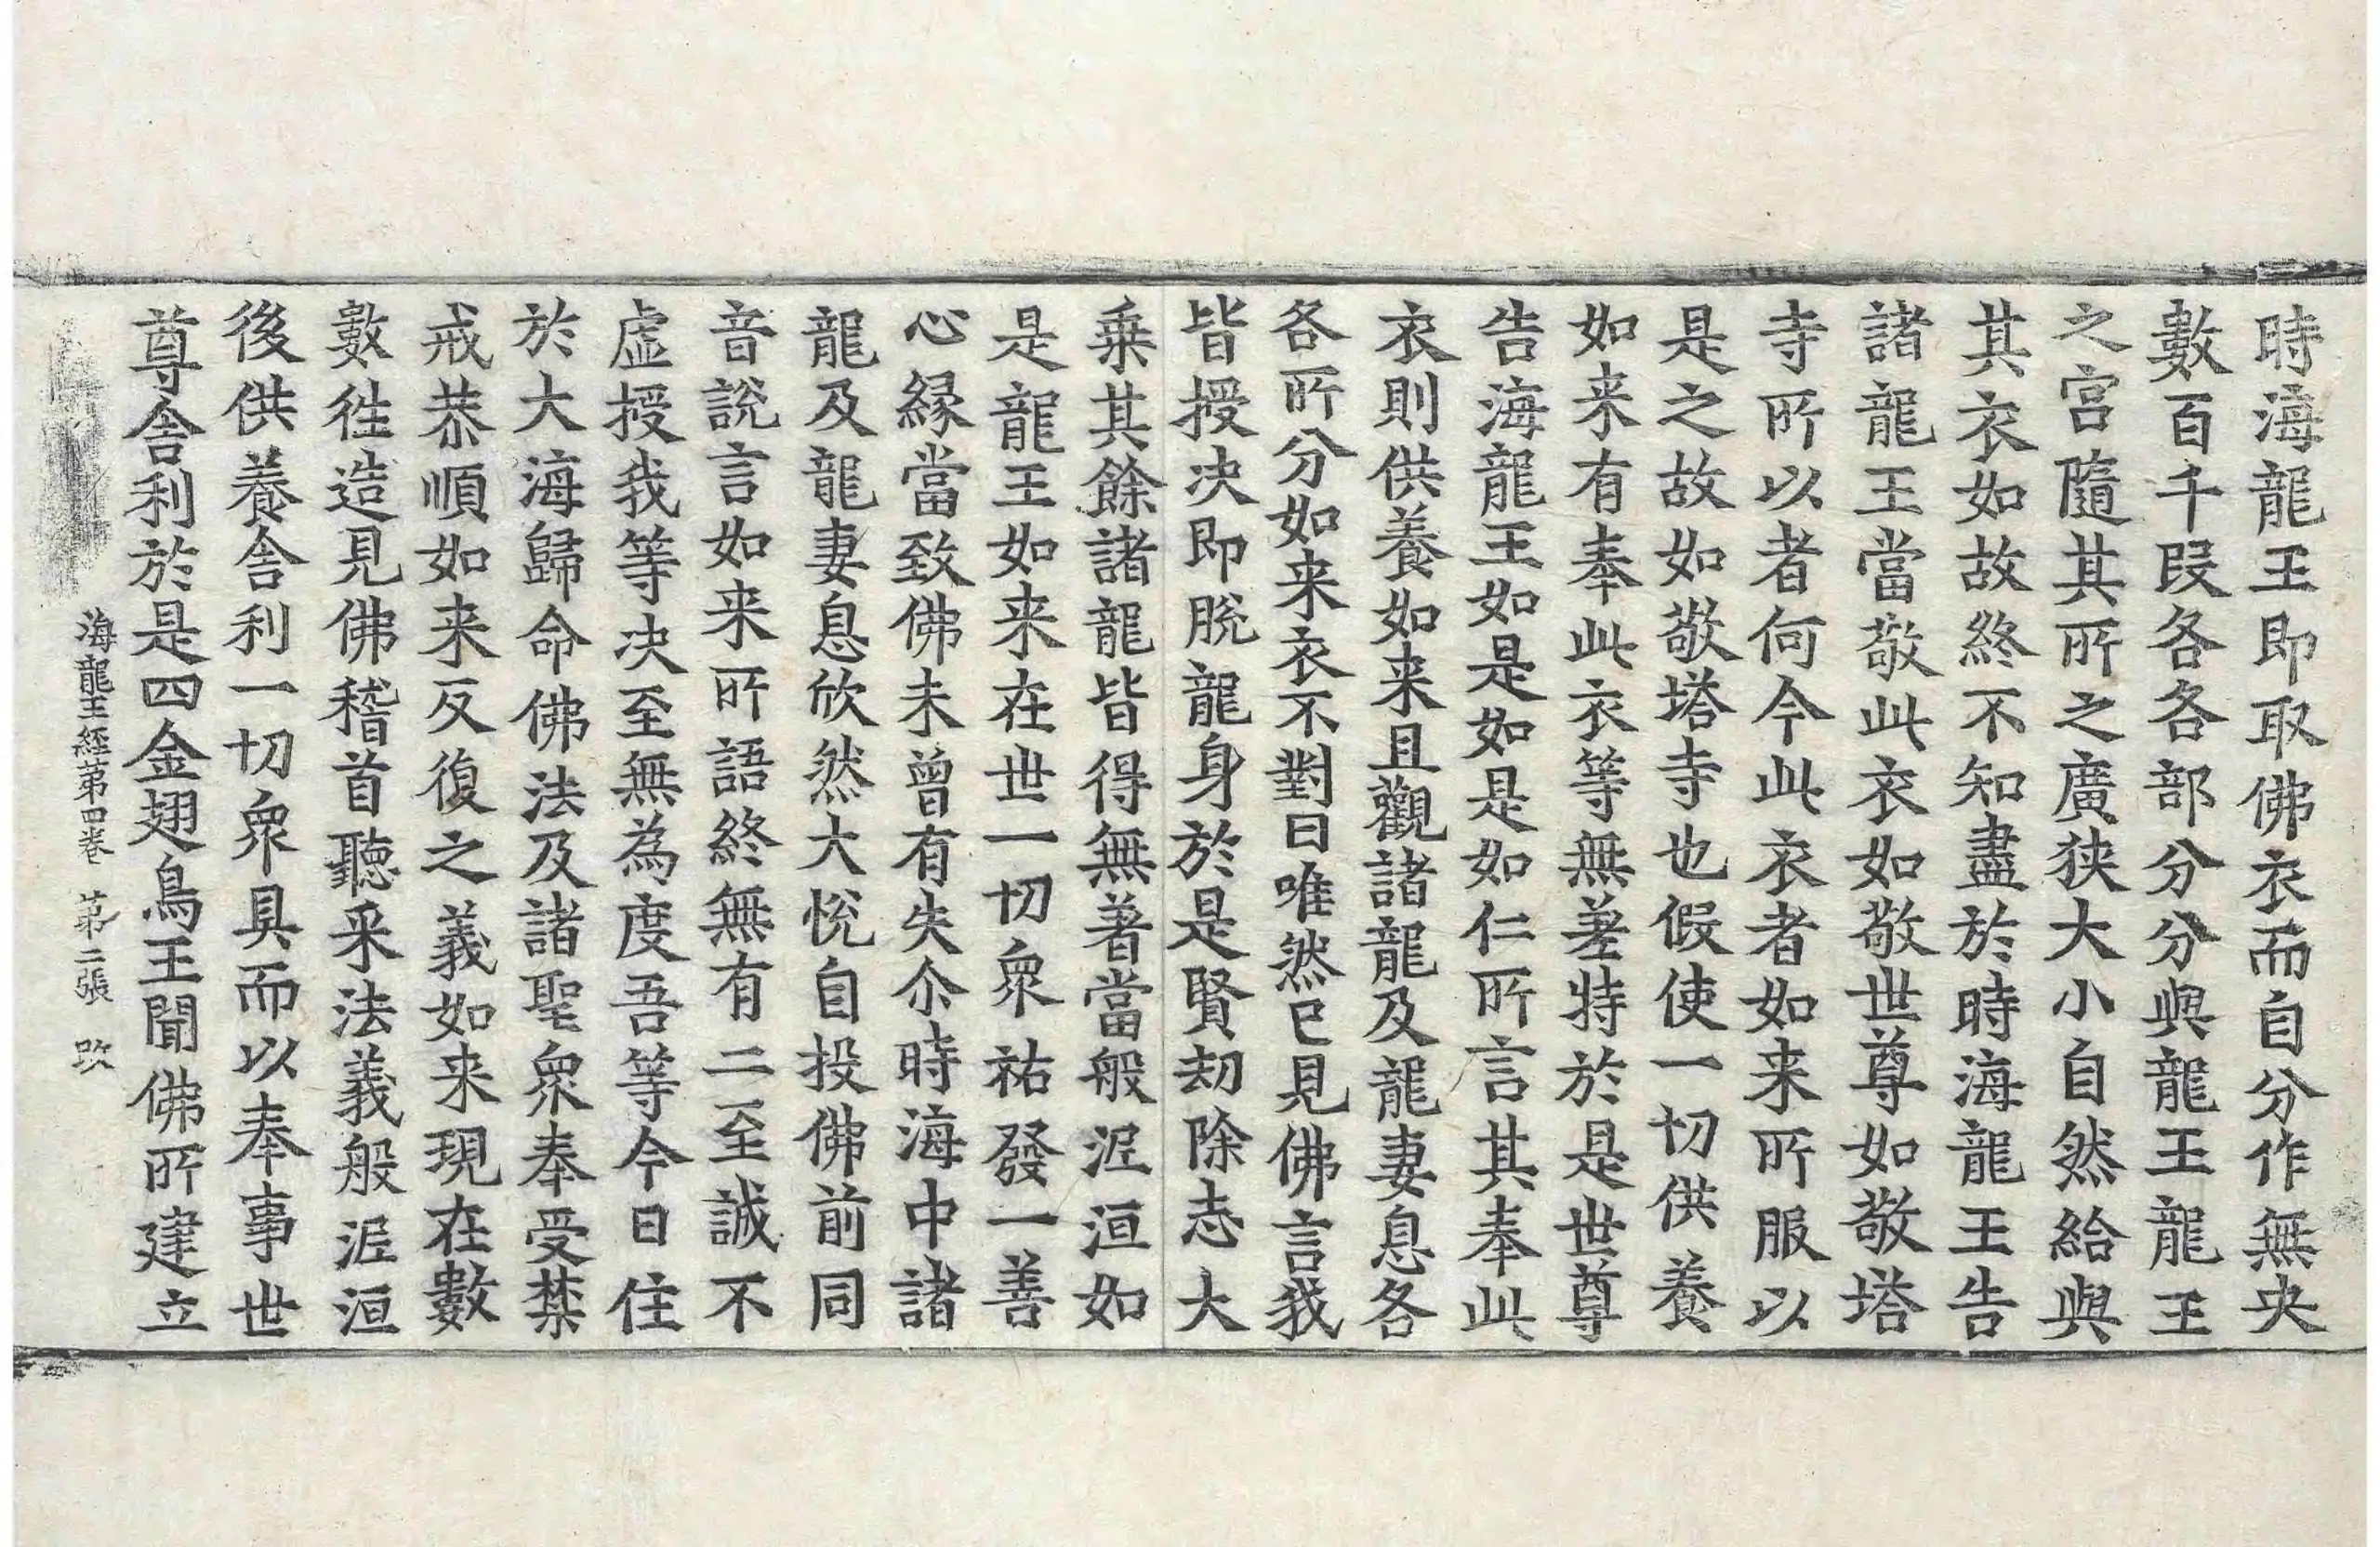 時海龍王即取佛衣而自分作無央
數百千段各各部分分與龍王龍王
之宮隨其所之廣狹大小自然給與
其衣如故終不知盡於時海龍王告
諸龍王當敬此衣如敬世尊如敬塔
寺所以者何今此衣者如来所服以
是之故如敬塔寺也假使一切供養
如来有奉此衣等無差特於是世尊
告海龍王如是如是如仁所言其奉此
衣則供養如来且觀諸龍及龍妻息各
各所分如来衣不對曰唯然已見佛言我
皆授决即脫龍身於是賢劫除志大
乗其餘諸龍皆得無著當般泥洹如
是龍王如来在世一切衆祐發一善
心緣當致佛未曾有失尒時海中諸
龍及龍妻息欣然大悅自投佛前同
音說言如来所語終無有二至誠不
虛授我等决至無為度吾等今日住
於大海歸命佛法及諸聖衆奉受禁
戒恭順如来反復之義如来現在數
數徃造見佛稽首聽采法義般泥洹
後供養舍利一切衆具而以奉事世
尊舍利於是四金翅鳥王聞佛所建立
海龍王經苐四卷 苐二張